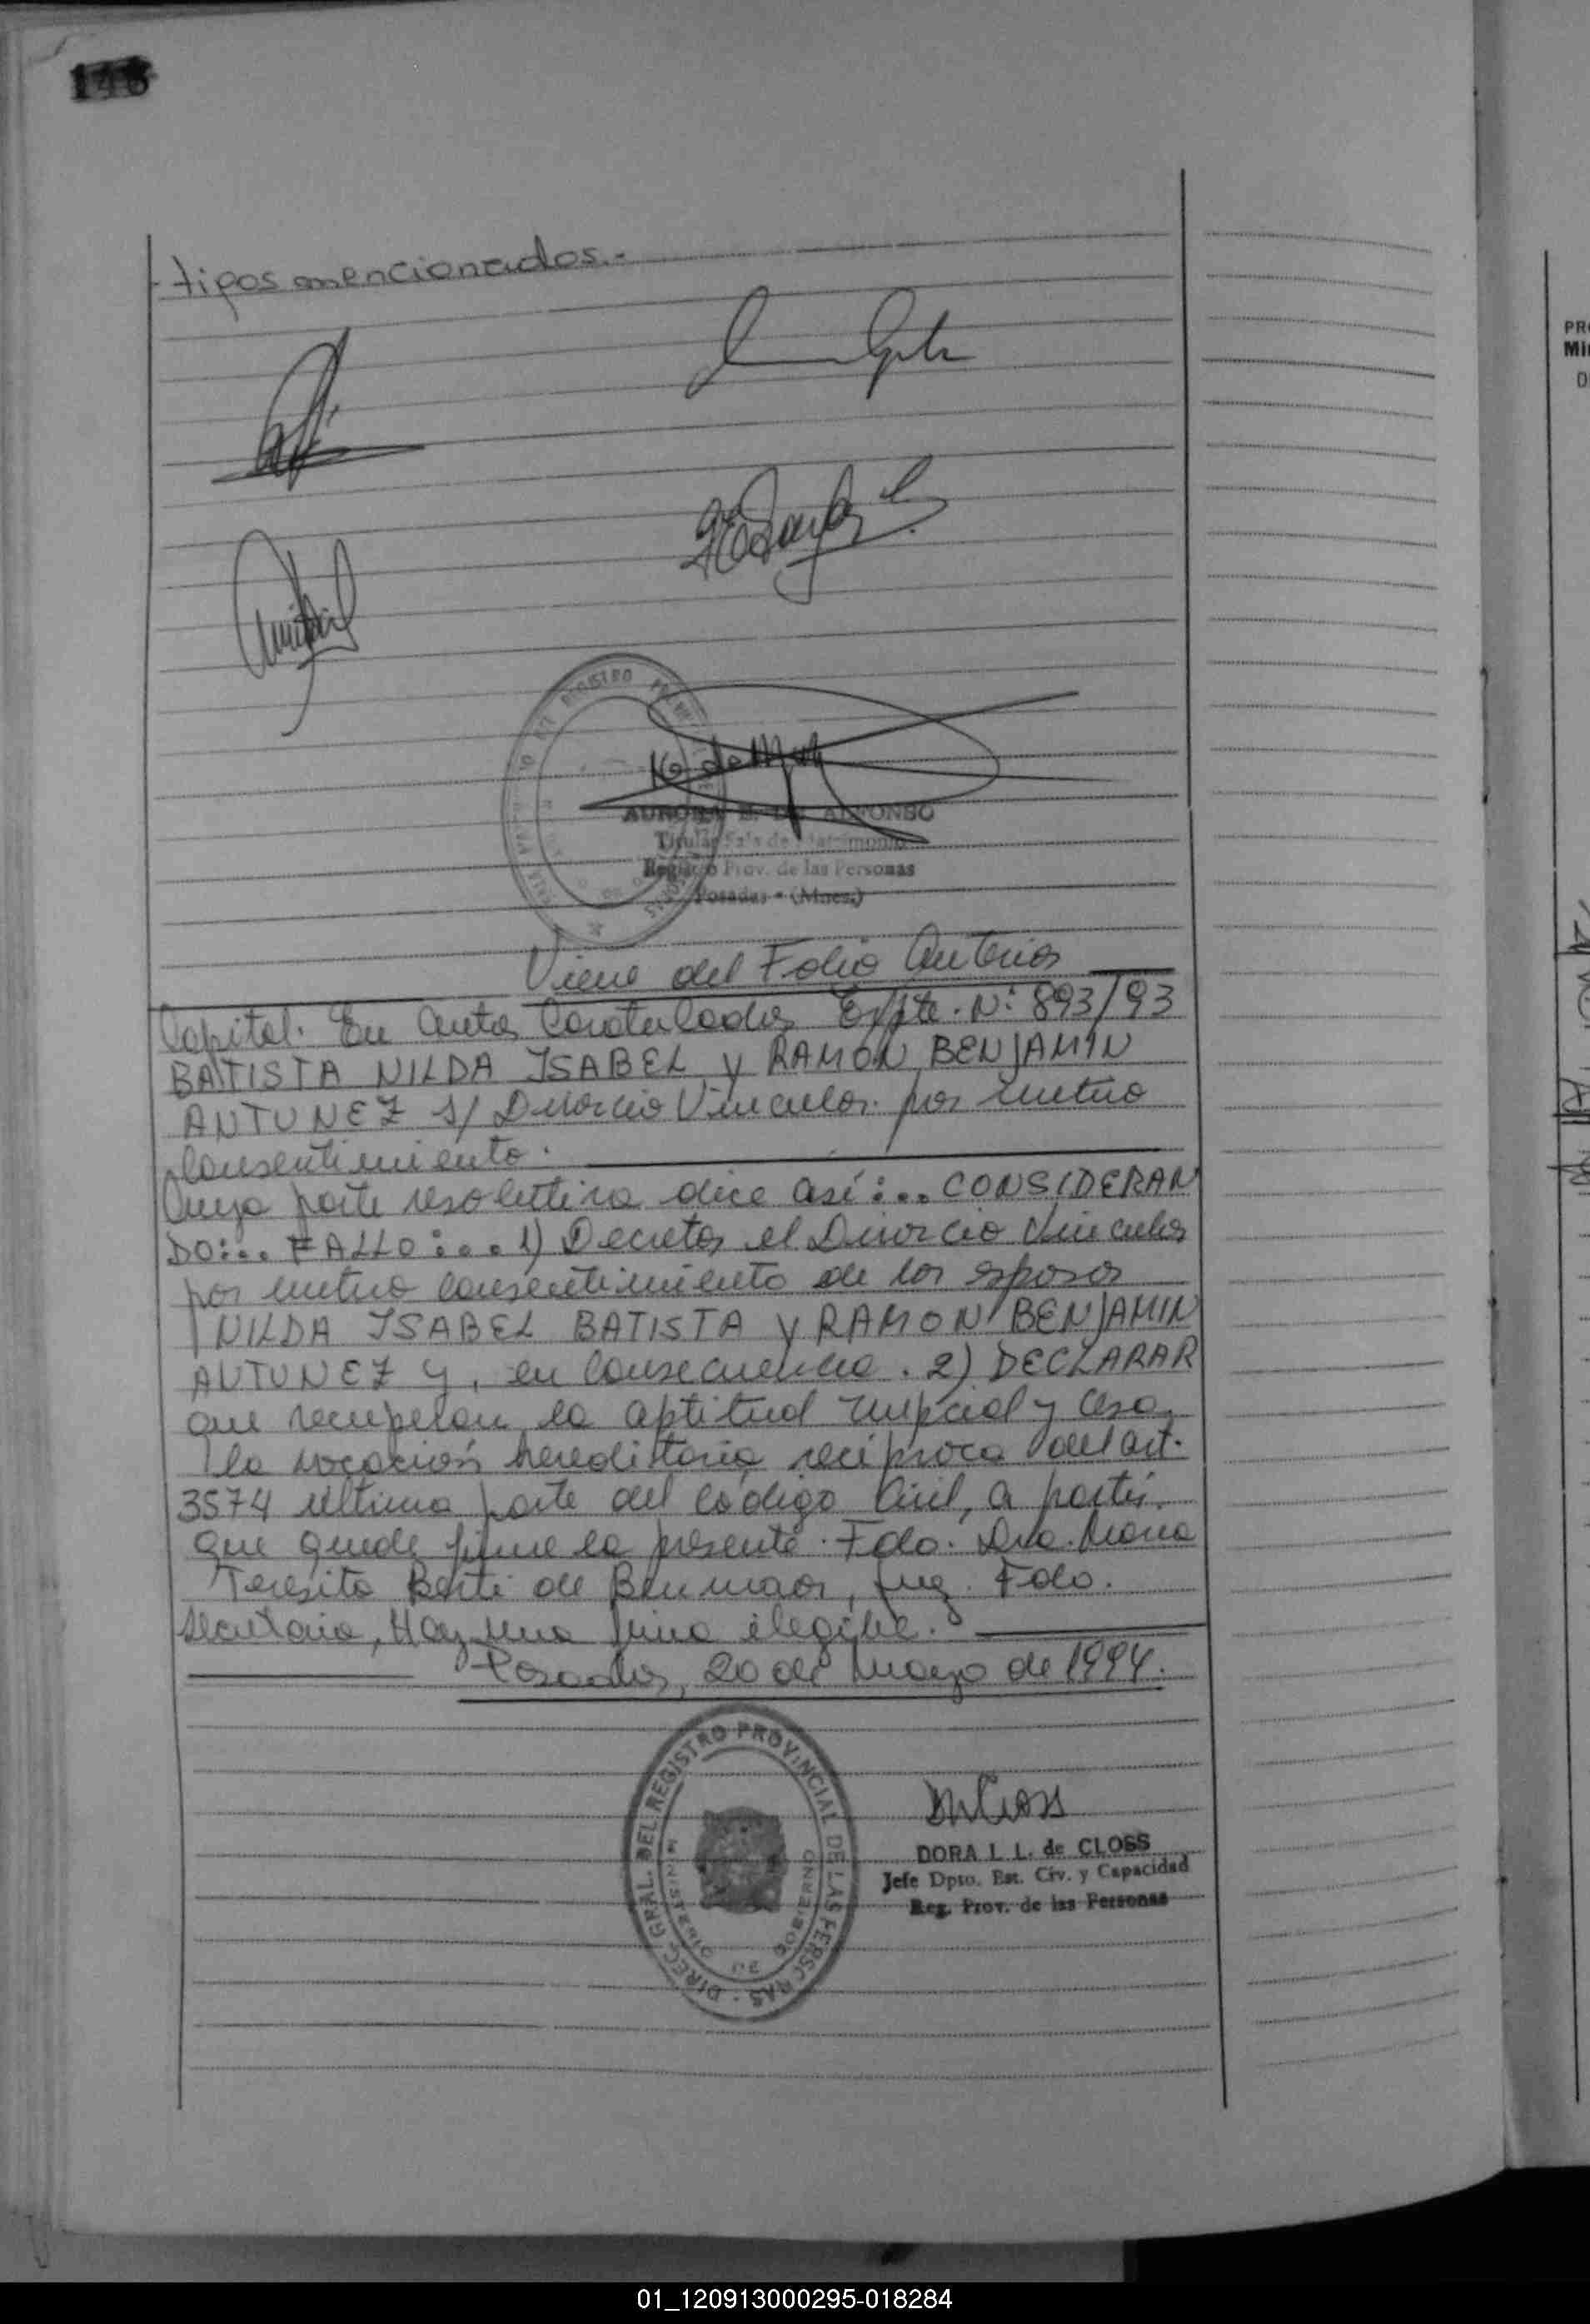 146
tipos mencionados.-
AURORA E. DE ALFONSO
Titular Sala de Matrimonio
Registro Prov. de las Personas
Posadas - (Mnes.)
Viene del Folio Anterior
Capital. En Autos Caratulados Expte. Nº 893/93
BATISTA NILDA ISABEL y RAMÓN BENJAMIN
ANTUNEZ S/ Divorcio Vincular por mutuo
consentimiento.
Cuya parte resolutiva dice así:.. CONSIDERAN
DO:.. FALLO:... 1) Decretar el Divorcio Vincular
por mutuo consentimiento de los esposos
NILDA ISABEL BATISTA y RAMON BENJAMIN
ANTUNEZ y, en consecuencia. 2) DECLARAR
que recuperan la aptitud nupcial y cesa
la vocación hereditaria recíproca del art.
3574 última parte del Código Civil, a partir
que quede firme la presente. Fdo. Dra. Maria
Teresita Berti de Benmaor, Juez. Fdo.
Secretaria, Hay una firma ilegible.
Posadas, 20 de Marzo de 1994.
DIREC. GRAL. DEL REGISTRO PROVINCIAL DE LAS PERSONAS
MINISTERIO DE GOBIERNO
DORA L. L. de CLOSS
Jefe Dpto. Est. Civ. y Capacidad
Reg. Prov. de las Personas
01_120913000295-018284